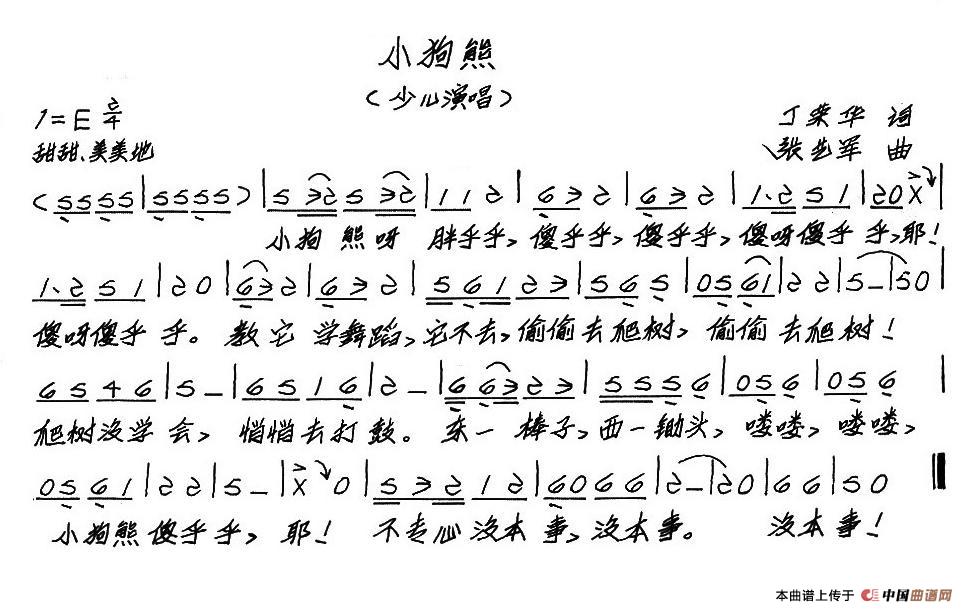 小狗熊
（少儿演唱）
1=E 2/4
丁荣华 词
甜甜、美美地
张艺军 曲
(5555|5555)|5 325 32|112|632|632|1.251|20X|
小狗熊呀 胖乎乎，傻乎乎，傻乎乎，傻呀傻乎乎，耶！
1.251|20|632|632|56123|565|0561|22|5–|50|
傻呀傻乎乎。教它学舞蹈，它不去，偷偷去爬树，偷偷去爬树！
6546|5–|6516|2–|66323|5556|056|056|
爬树没学会，悄悄去打鼓。东一棒子，西一锄头，喽喽，喽喽，
0561|22|5–|X0|53212|6066|2–|20|66|50
小狗熊傻乎乎，耶！ 不专心没本事，没本事。 没本事！
本曲谱上传于 中国曲谱网